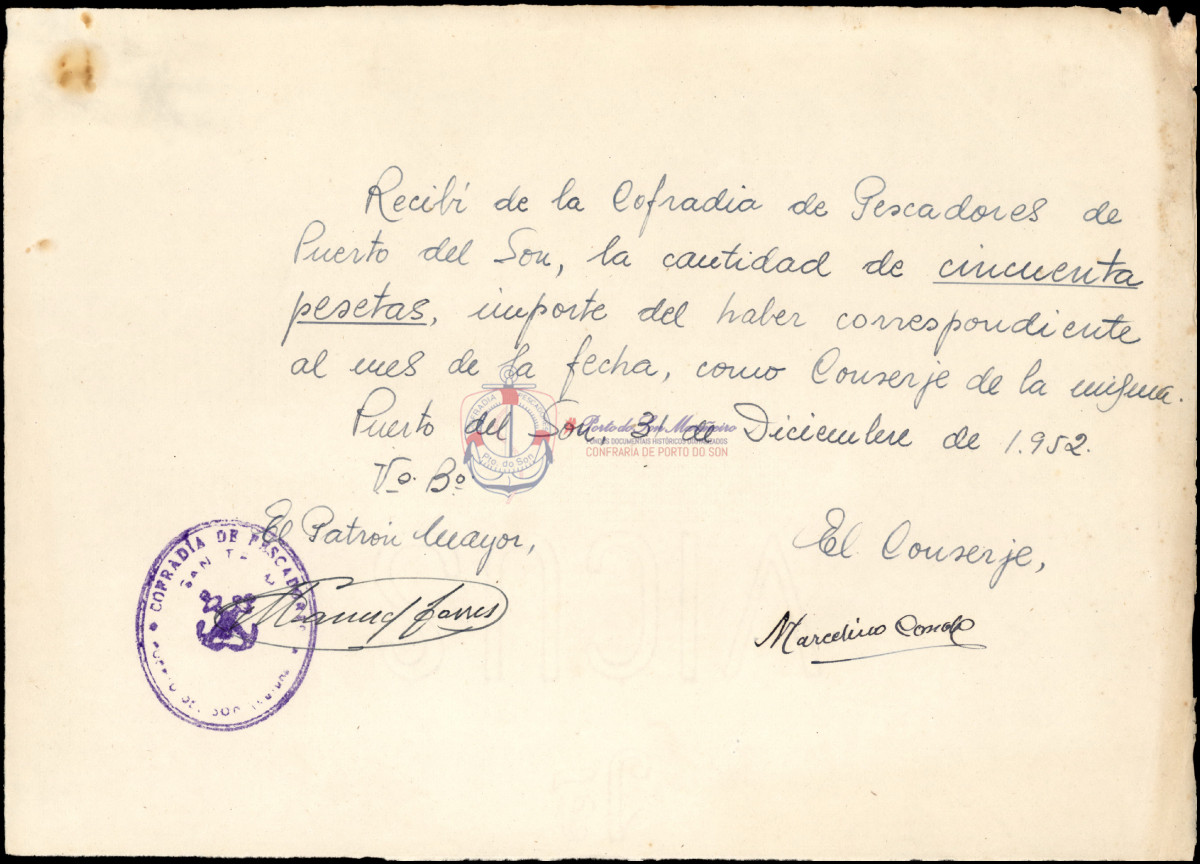 Recibí de la Cofradia de Pescadores de
Puerto del Son, la cantidad de cincuenta
pesetas, importe del haber correspondiente
al mes de la fecha, como Conserje de la misma.
Puerto del Son, 31 de Diciembre de 1.952.
Vº. Bº
El Patrón Mayor,
El Conserje,
Marcelino
COFRADÍA DE PESCADORES
SAN
DEL SON
COFRADIA PESCADORES
Pto. do Son
Porto do Son Mariñeiro
FONDOS DOCUMENTAIS HISTÓRICOS DIXITALIZADOS
CONFRARÍA DE PORTO DO SON